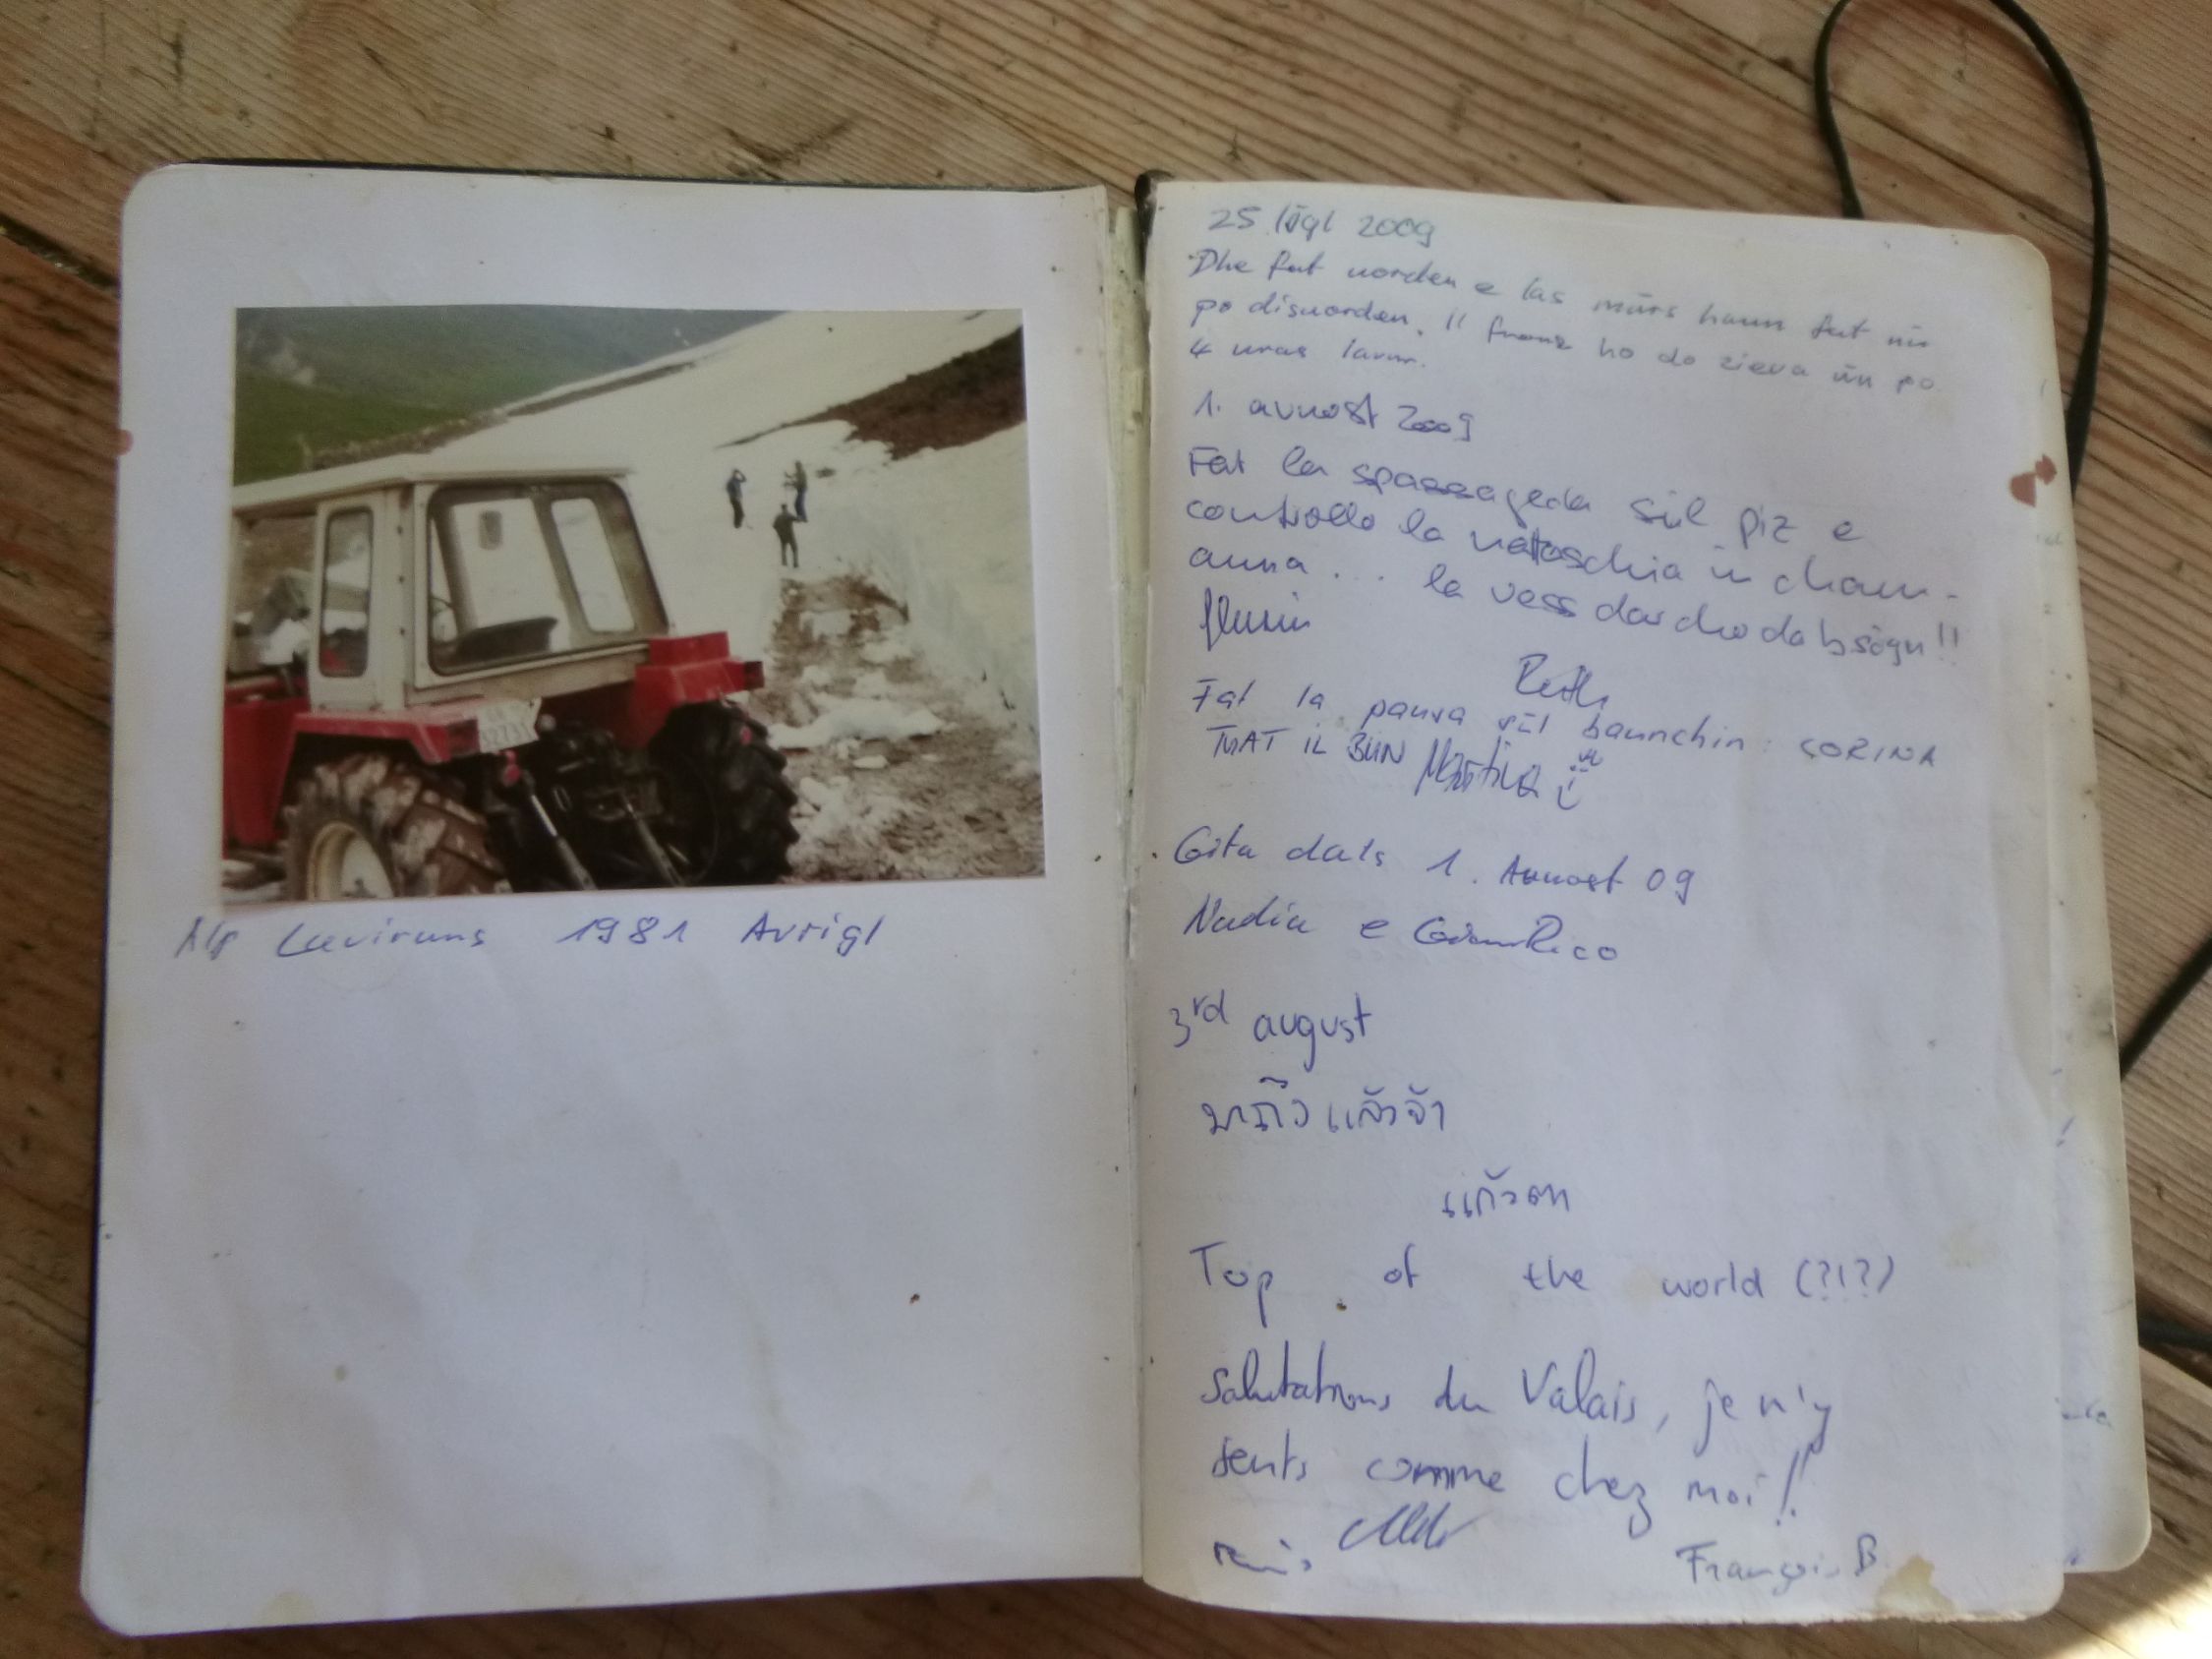 Alp Laviruns 1981 Avrigl
25. lügl 2009
fat uorden e las mürs haun fat
po disuorden. Il ho do zieva ün po
4 uras lavur.
1. avuost 2009
Fat la spassageda sül piz e
controllo la nataschia in cham-
anna... la vess darcho da bsögn!!
Fat la pausa sül baunchin: CORINA
TUAT IL BUN Martina
Gita dals 1. Avuost 09
Nadia e GianRico
3rd august
มาถึงแล้วจ้า
แก้วตา
Top of the world (?!?)
Salutations du Valais, je m'y
sents comme chez moi!!
François B